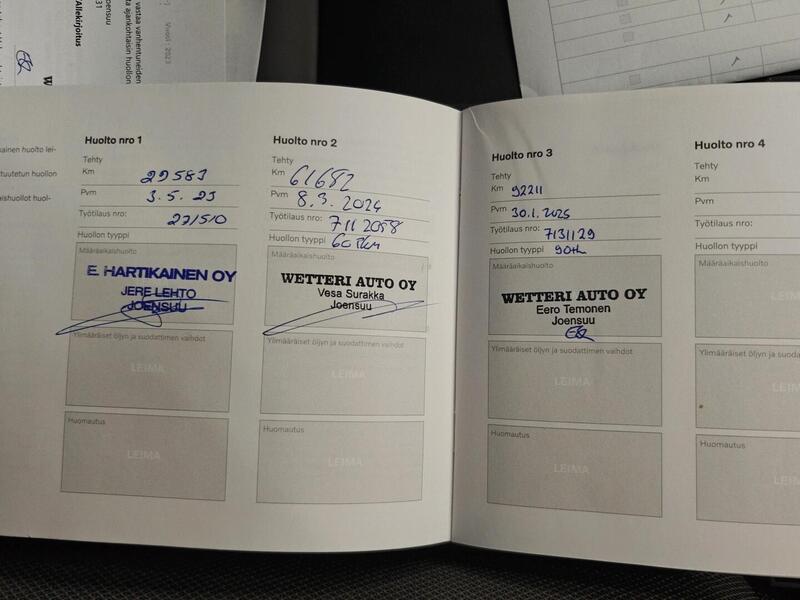 Vuosi 2023
vastaa vanhentuneiden
ta ajankohtaisin huollon
Allekirjoitus
oensuu
31
kainen huolto lei-
tuutetun huollon
aishuollot huol-
Huolto nro 1
Tehty
Km 29583
Pvm 3.5.23
Työtilaus nro: 271510
Huollon tyyppi
Määräaikaishuolto
E. HARTIKAINEN OY
JERE LEHTO
JOENSUU
Ylimääräiset öljyn ja suodattimen vaihdot
LEIMA
Huomautus
LEIMA
Huolto nro 2
Tehty
Km 61682
Pvm 8.3.2024
Työtilaus nro: 7112058
Huollon tyyppi 60 tkm
Määräaikaishuolto
WETTERI AUTO OY
Vesa Surakka
Joensuu
Ylimääräiset öljyn ja suodattimen vaihdot
LEIMA
Huomautus
LEIMA
Huolto nro 3
Tehty
Km 92211
Pvm 30.1.2025
Työtilaus nro: 7131129
Huollon tyyppi 90th
Määräaikaishuolto
WETTERI AUTO OY
Eero Temonen
Joensuu
Ylimääräiset öljyn ja suodattimen vaihdot
LEIMA
Huomautus
LEIMA
Huolto nro 4
Tehty
Km
Pvm
Työtilaus nro:
Huollon tyyppi
Määräaikaishuolto
LEI
Ylimääräiset öljyn ja suodat
LEIM
Huomautus
LEI